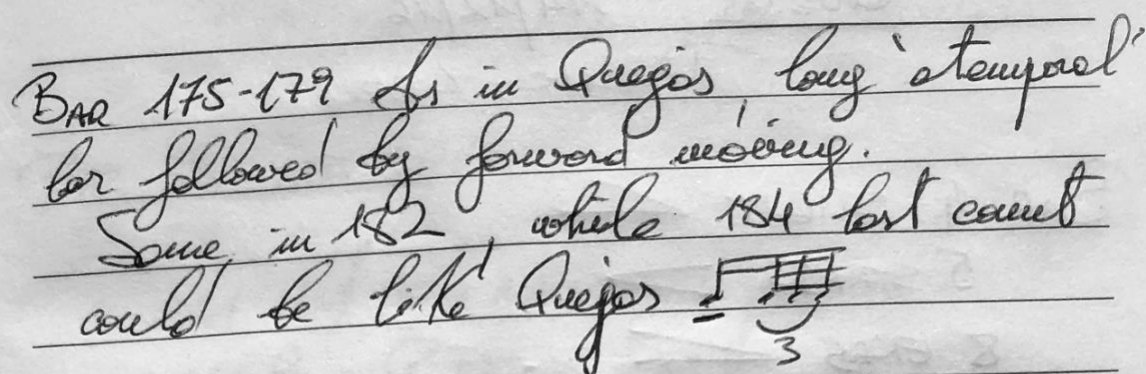 BAR 175-179 As in Quejas, long 'atemporal'
bar followed by forward moving.
Same in 182, while 184 last count
could be like Quejas
3